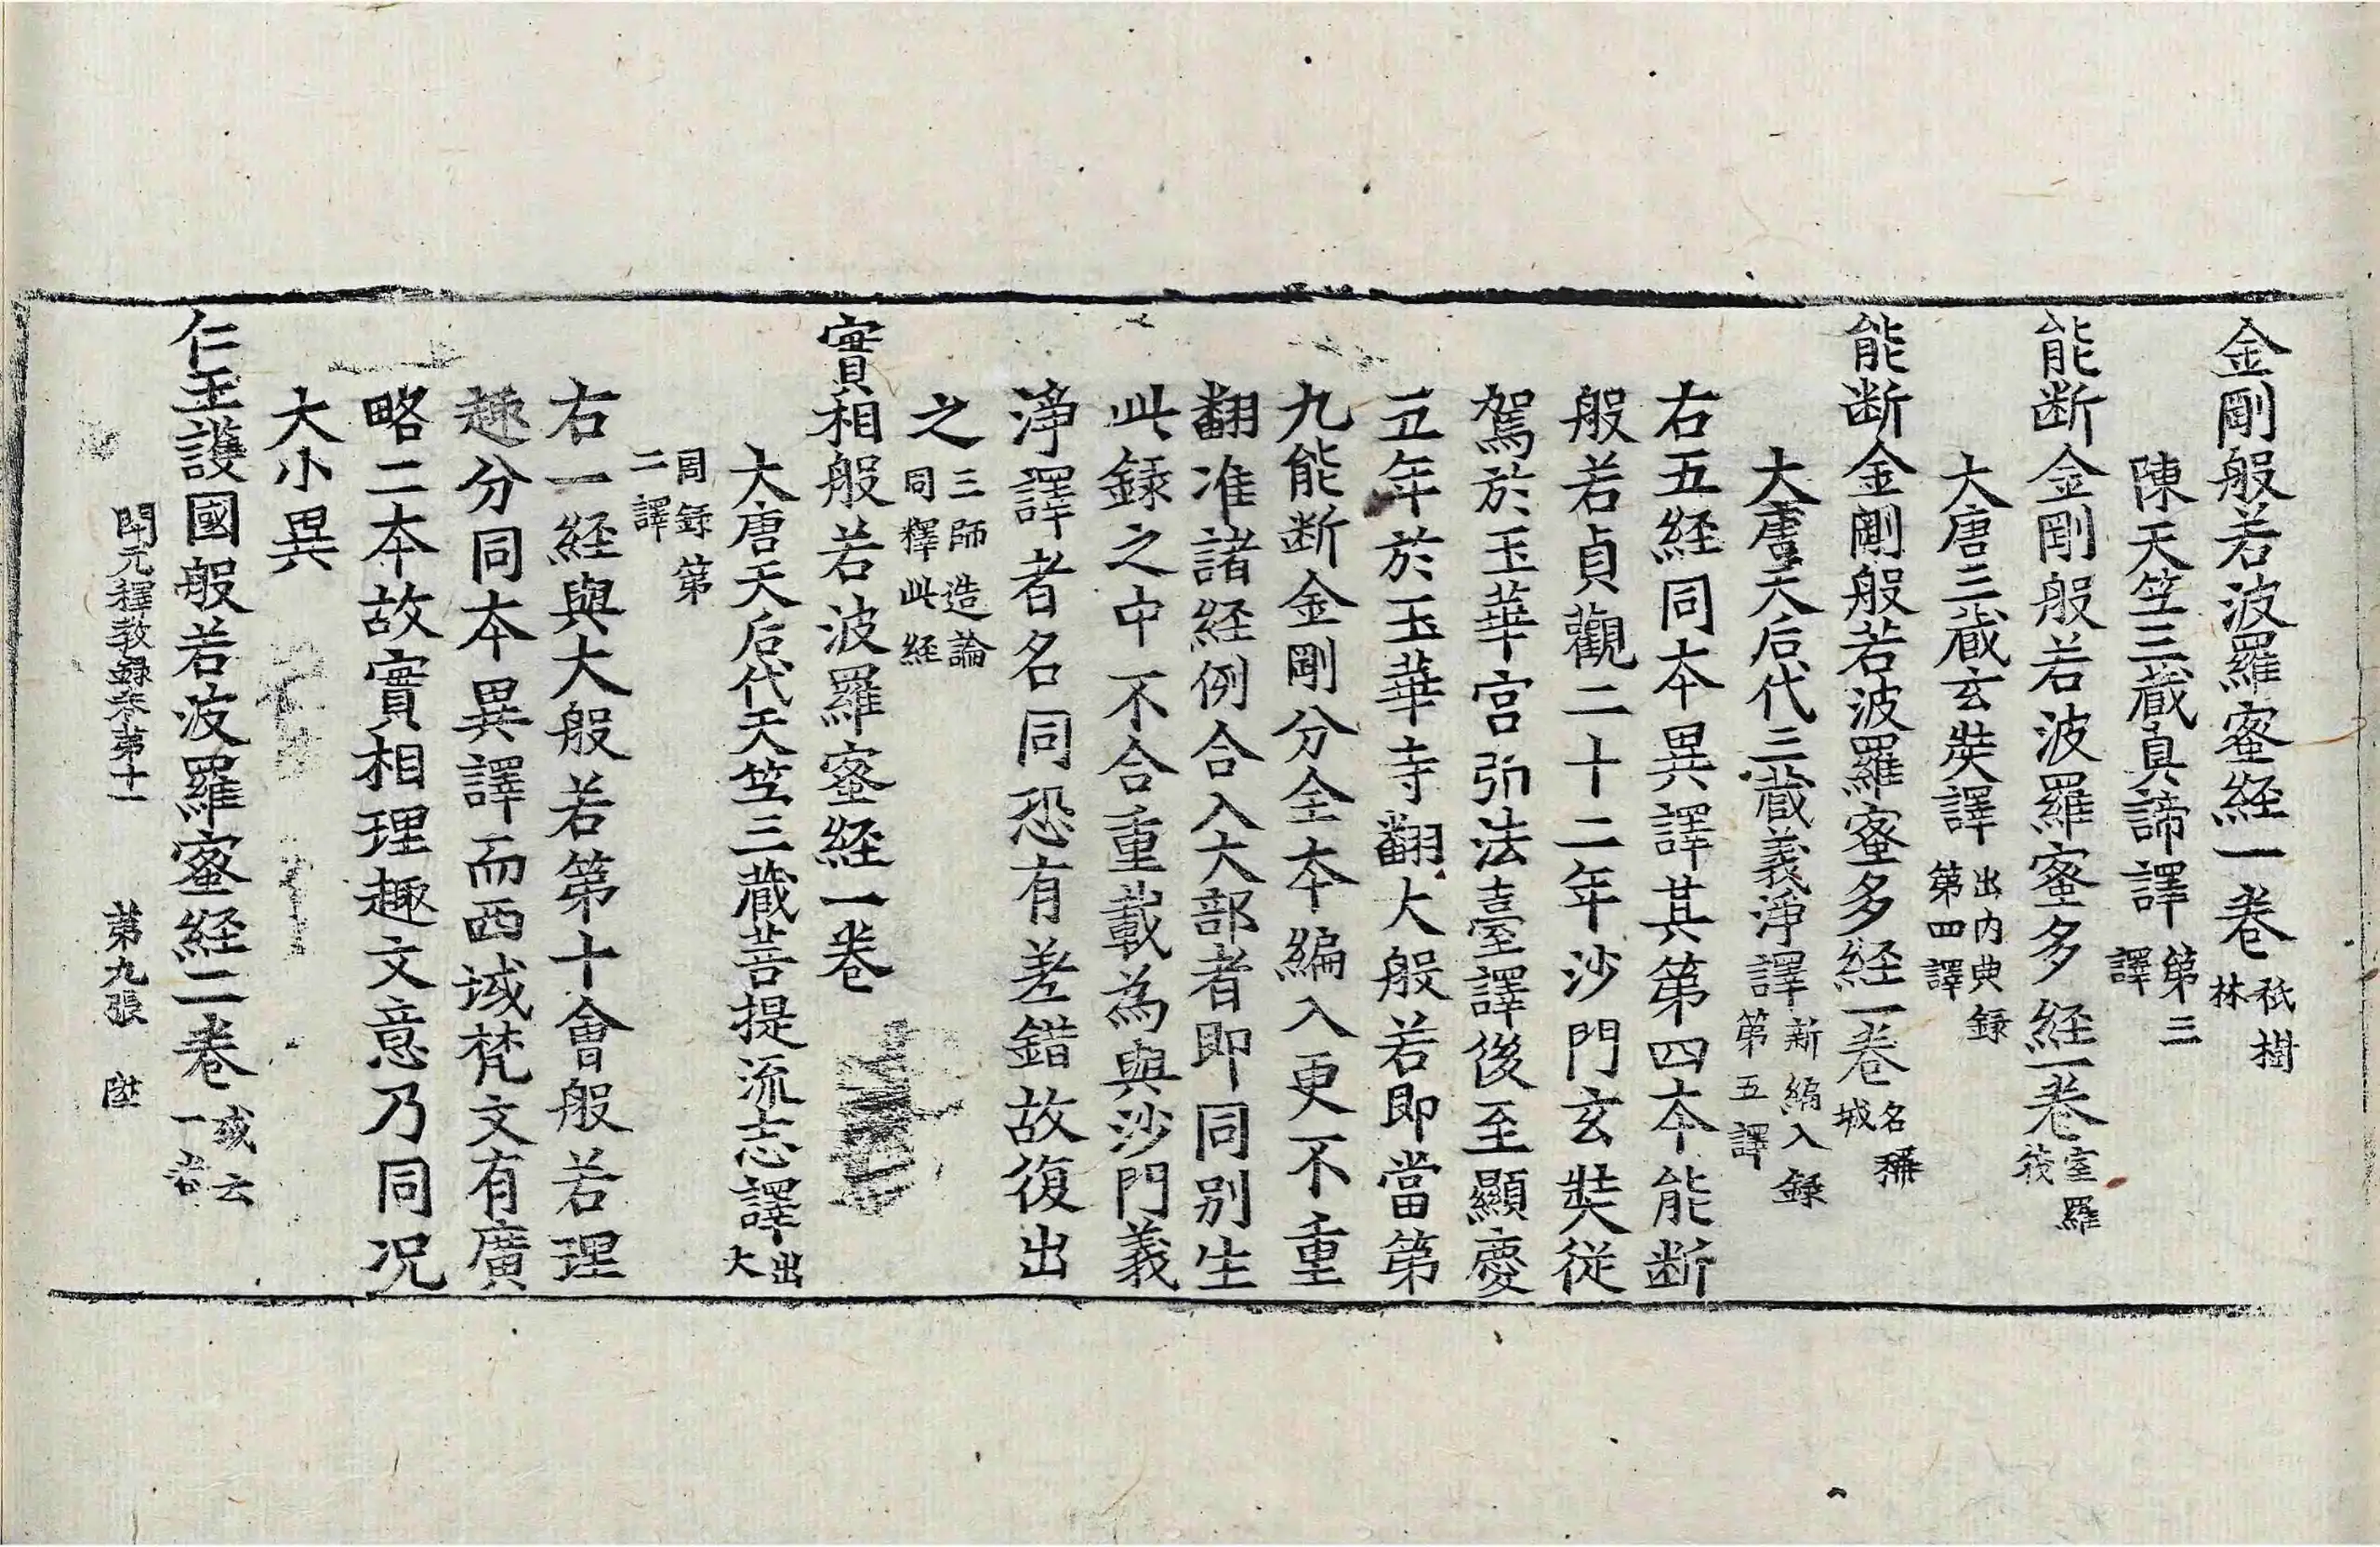 金剛般若波羅蜜経一巻 祇樹林
陳天竺三蔵真諦譯 第三譯
能断金剛般若波羅蜜多経一巻 室羅筏
大唐三蔵玄奘譯 出内典録第四譯
能断金剛般若波羅蜜多経一巻 名稱城
大唐天后代三蔵義淨譯 新編入録第五譯
右五経同本異譯其第四本能断
般若貞觀二十二年沙門玄奘従
駕於玉華宮弘法臺譯後至顯慶
五年於玉華寺翻大般若即當第
九能断金剛分全本編入更不重
翻准諸経例合入大部者即同別生
此録之中不合重載為與沙門義
淨譯者名同恐有差錯故復出
之 三師造論同釋此経
實相般若波羅蜜経一巻
大唐天后代天竺三蔵菩提流志譯 出大
周録第二譯
右一経與大般若第十會般若理
趣分同本異譯而西域梵文有廣
略二本故實相理趣文意乃同況
大小異
仁王護國般若波羅蜜経二巻 或云一巻
開元釋教録巻第十一 第九張